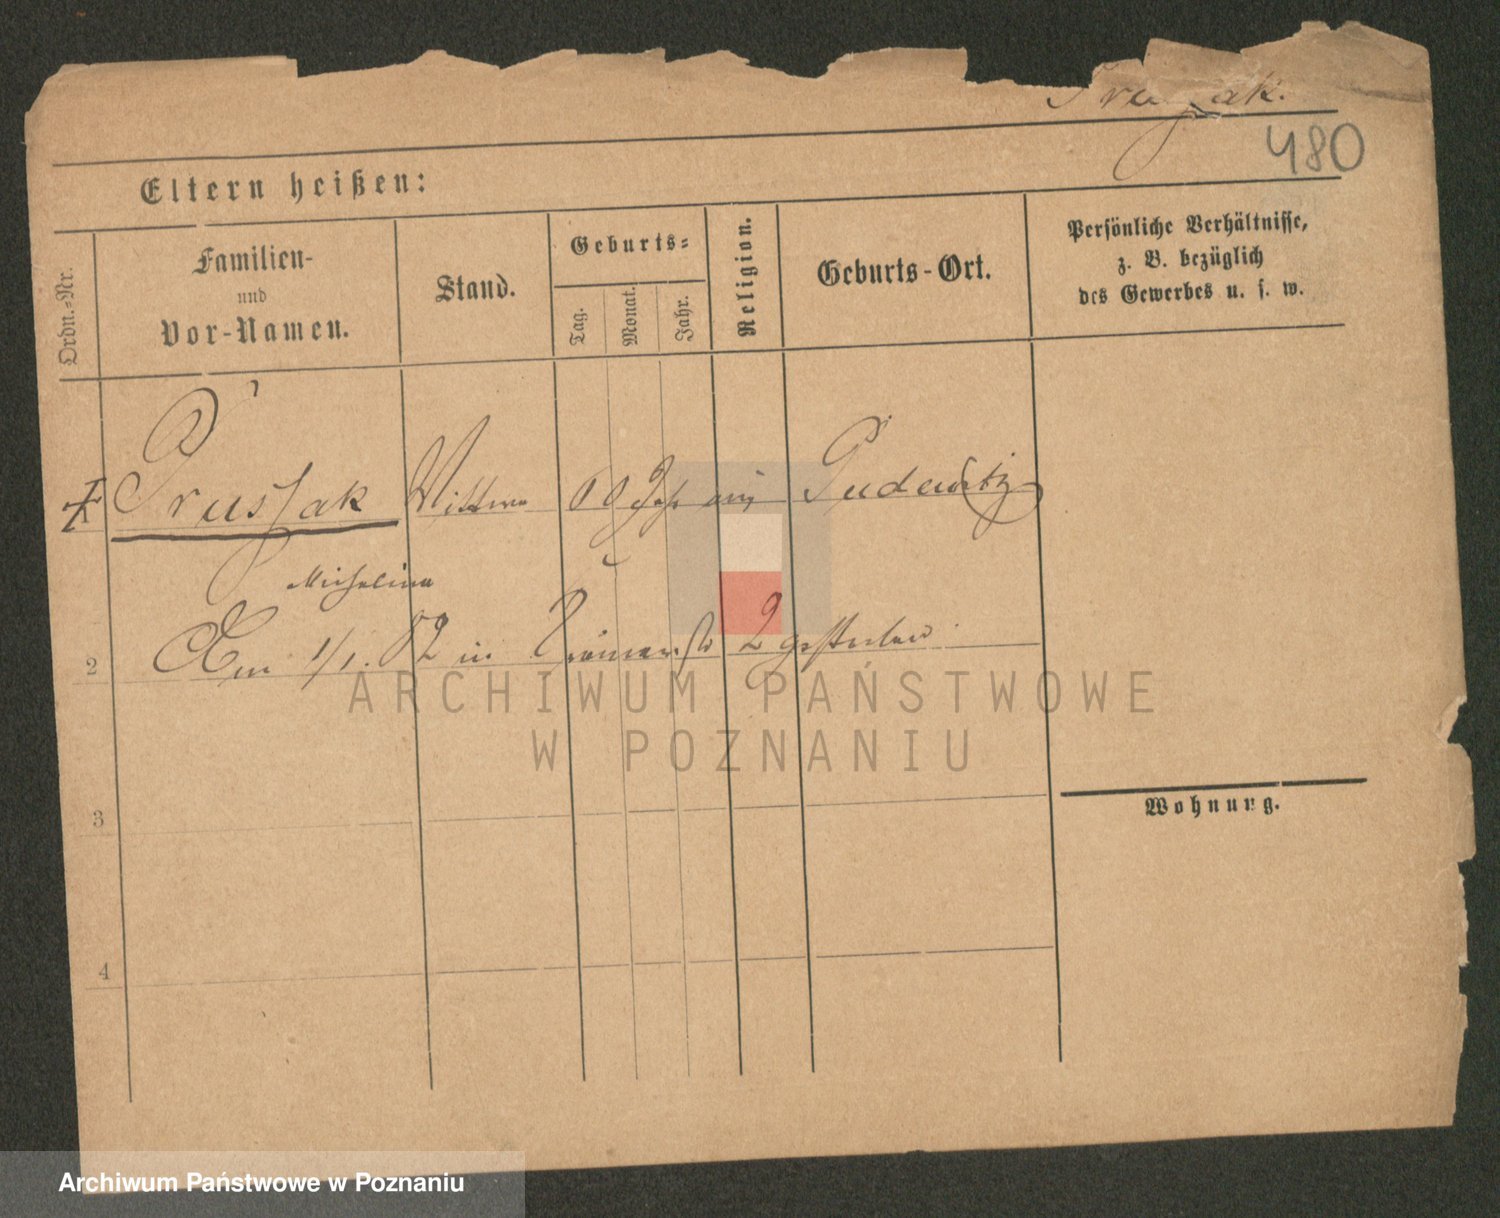 Prusjak.
480
Eltern heißen:
Ordn.-Nr.
Familien-
und
Vor-Namen.
Stand.
Geburts-
Tag.
Monat.
Jahr.
Religion.
Geburts-Ort.
Persönliche Verhältnisse,
z. B. bezüglich
des Gewerbes u. s. w.
Prusjak Wittwe 60 Jahr aus Pudewitz
Michalina
2 Am 1/1. 82 in 2 gestorben.
ARCHIWUM PAŃSTWOWE
W POZNANIU
3
Wohnung.
4
Archiwum Państwowe w Poznaniu